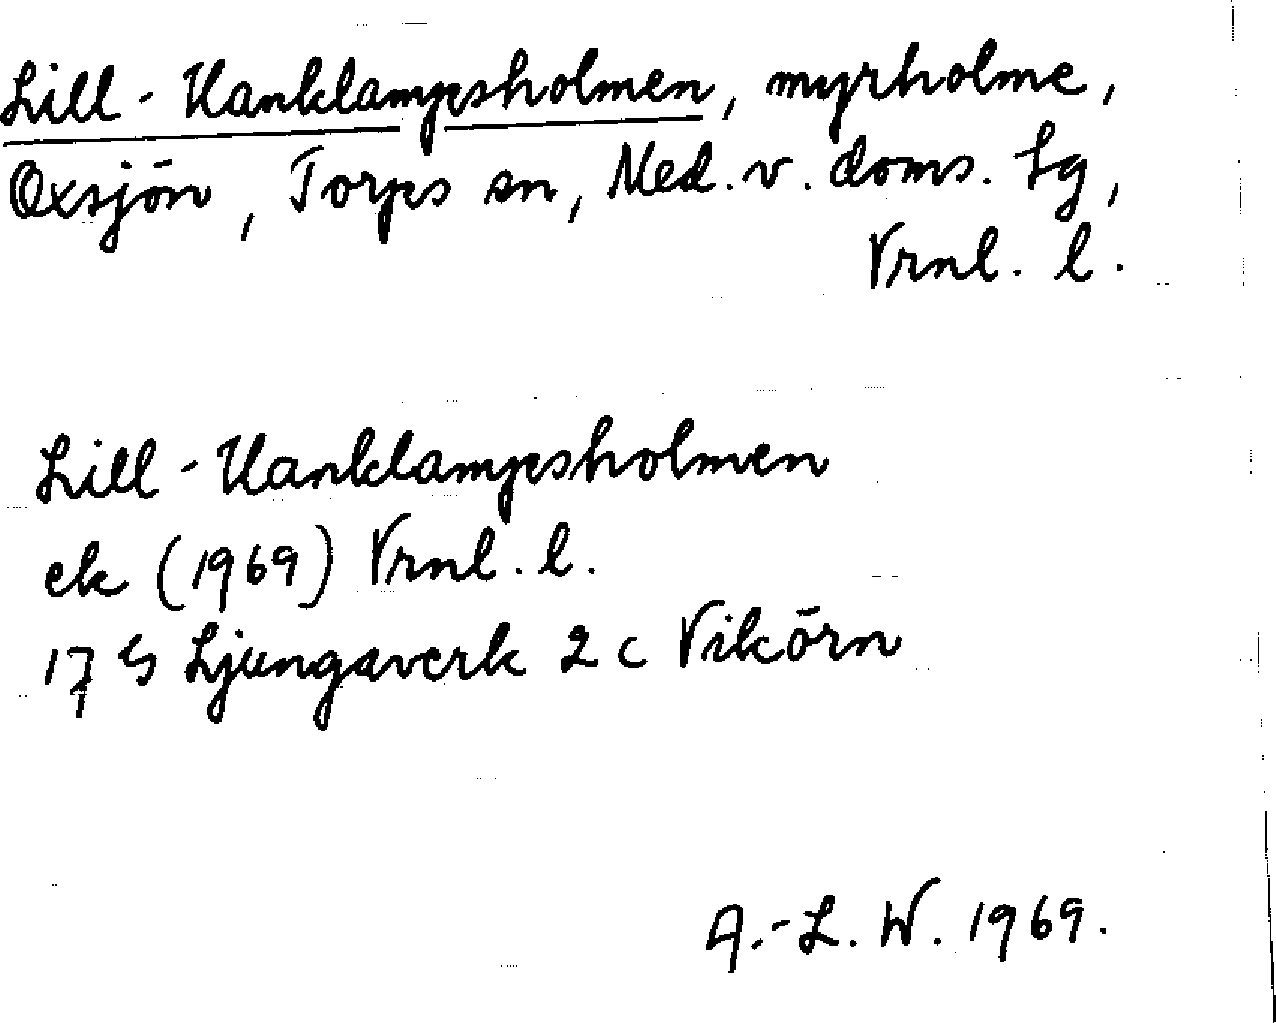 Lill-Kanklampsholmen, myrholme,
Oxsjön, Torps sn, Med. v. doms. tg,
Vrnl. l.
Lill-Kanklampsholmen
ek (1969) Vrnl. l.
17 G Ljungaverk 2 c Vikörn
A.-L. W. 1969.